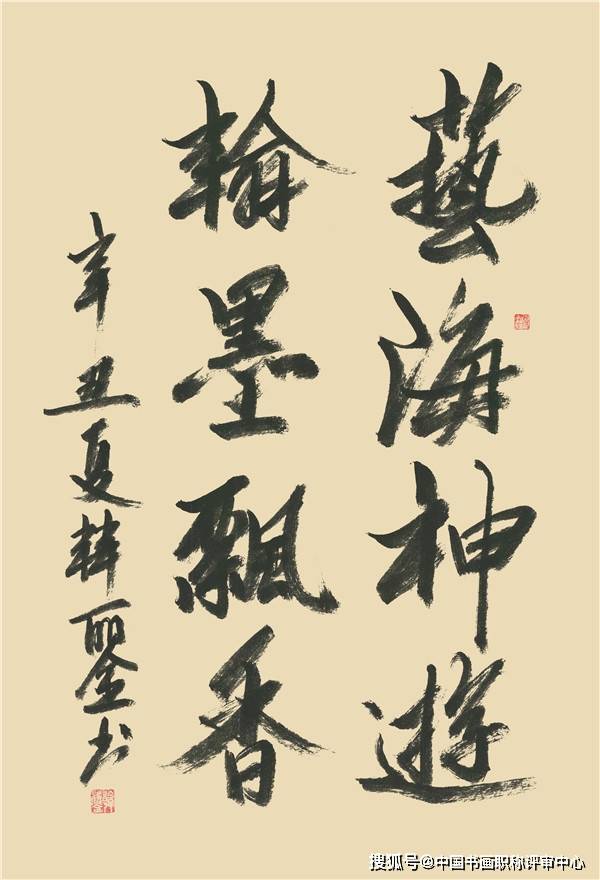 藝海神遊
翰墨飄香
辛丑夏韩书
搜狐号@中国书画职称评审中心